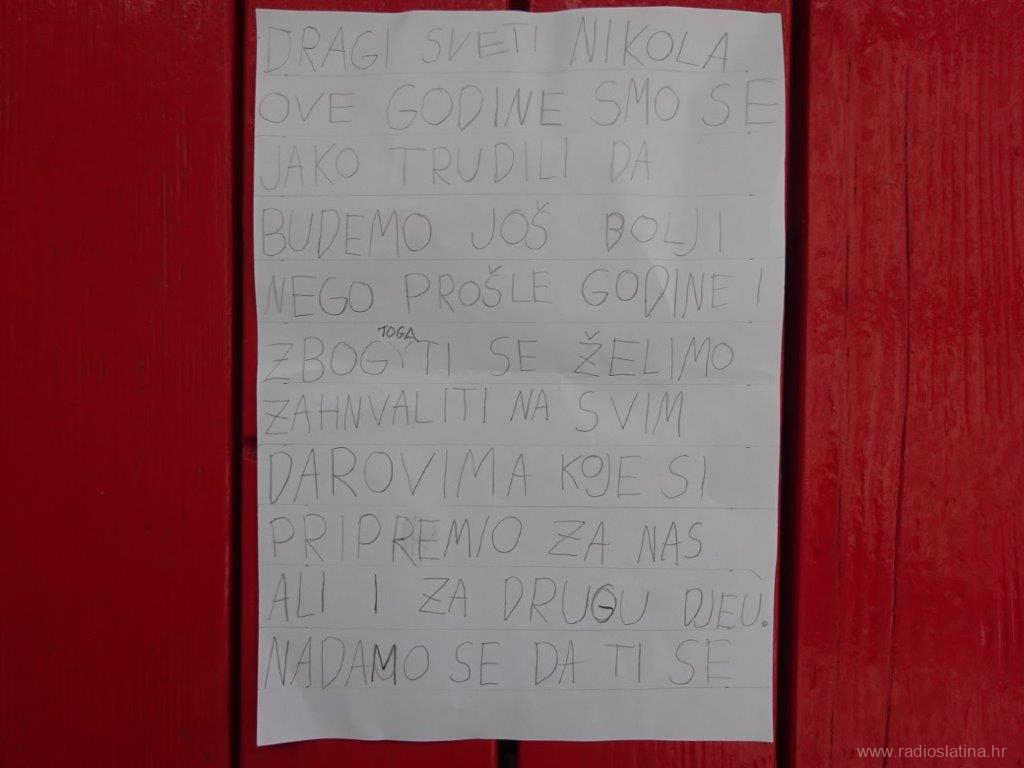 DRAGI SVETI NIKOLA
OVE GODINE SMO SE
JAKO TRUDILI DA
BUDEMO JOŠ BOLJI
NEGO PROŠLE GODINE I
ZBOG TOGA TI SE ŽELIMO
ZAHNVALITI NA SVIM
DAROVIMA KOJE SI
PRIPREMIO ZA NAS
ALI I ZA DRUGU DJECU.
NADAMO SE DA TI SE
www.radioslatina.hr